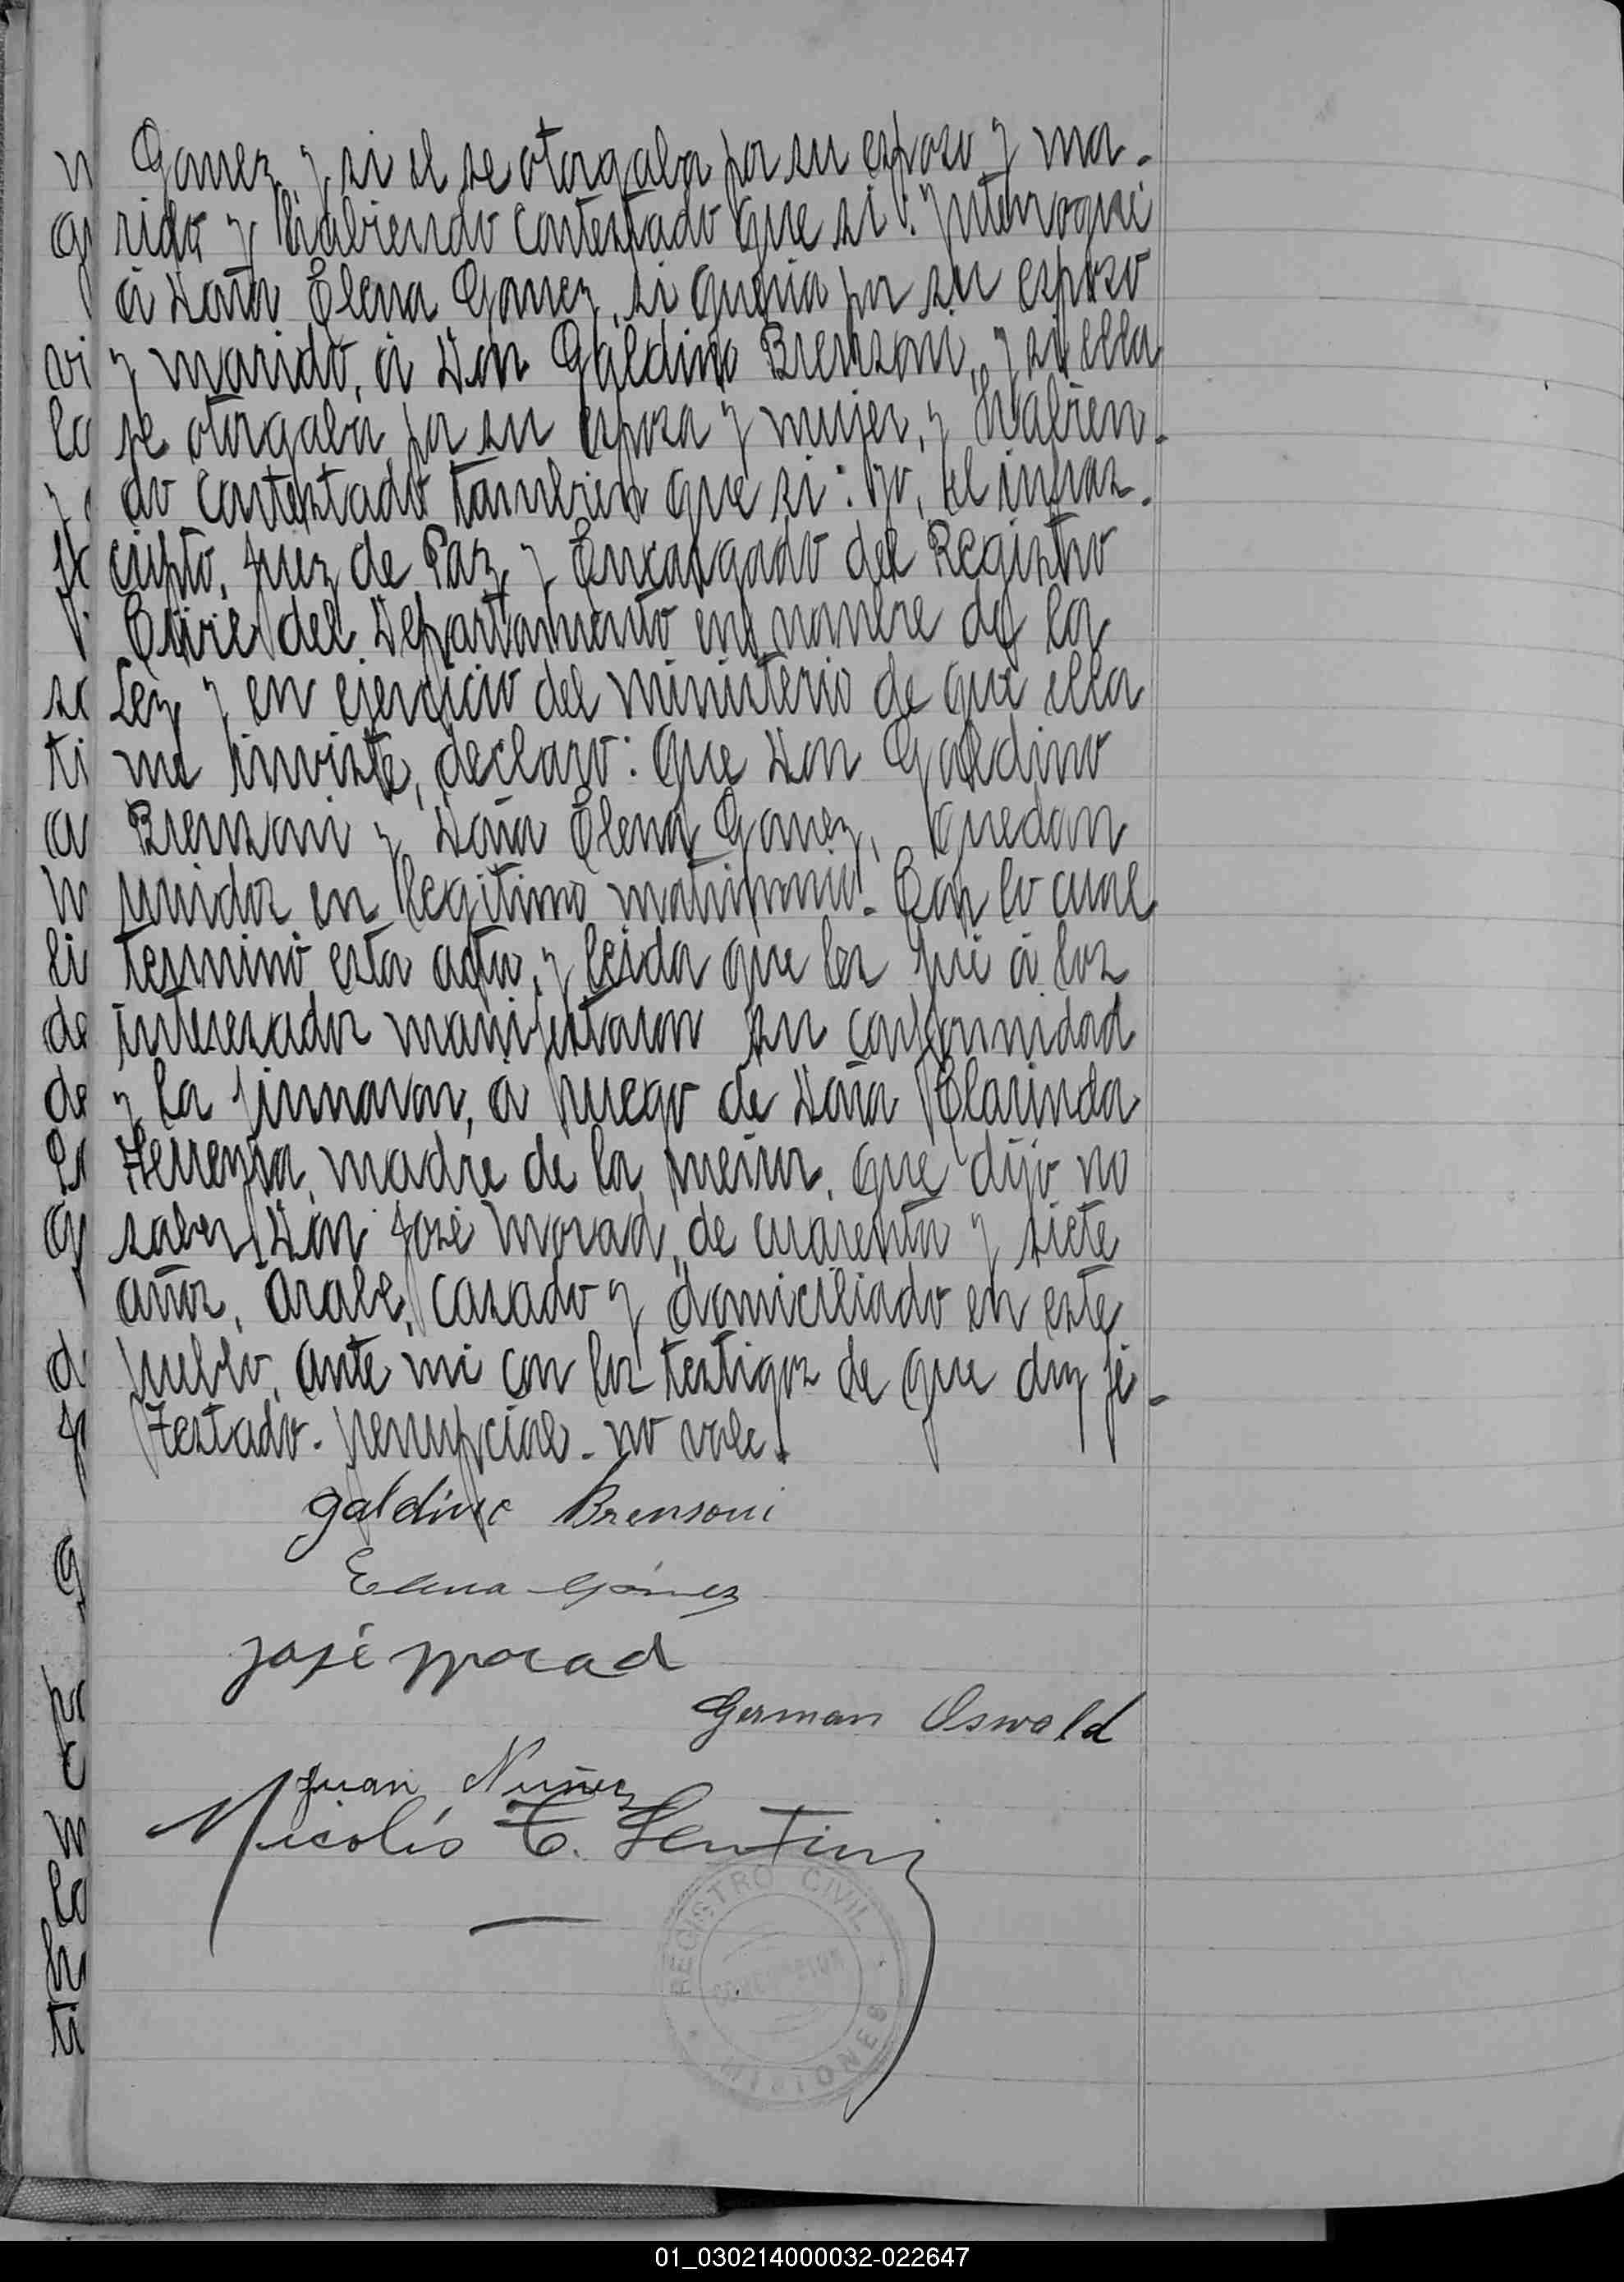 Gomez y si el se otorgaba por su esposo y ma-
rido y habiendo contestado que si: Ynterrogué
á Doña Elena Gomez, si queria por su esposo
y marido, á Don Galdino Brensoni, y si ella
se otorgaba por su esposa y mujer, y habien-
do contestado tambien que si: yo, el infras-
cripto, Juez de Paz y Encargado del Registro
Civil del Departamento en nombre de la
Ley y en ejercicio del ministerio de que ella
me inviste, declaro: Que Don Galdino
Brensoni y Doña Elena Gomez, quedan
unidos en legitimo matrimonio. Con lo cual
terminó esta acta, y leida que les fué á los
interesados manifestaron su conformidad
y la firmaron, á ruego de Doña Clarinda
Ferreyra, madre de la menor, que dijo no
saber, Don José Morad, de cuarenta y siete
años, arabe, casado y domiciliado en este
pueblo, ante mi con los testigos de que doy fé-
Testado- - no vale.
Galdino Brensoni
Elena Gómez
José Morad
German Oswald
Juan Nuñez
Nicolás C. Sentini
REGISTRO CIVIL
CONCEPCION
MISIONES
01_030214000032-022647